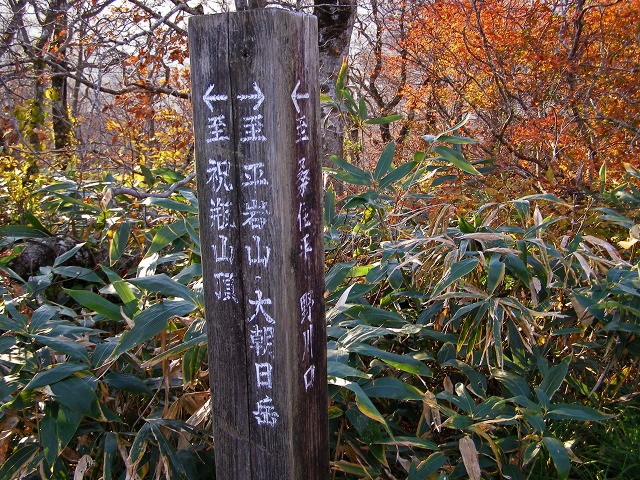 ← 至 祝瓶山頂
→ 至 平岩山・大朝日岳
← 至 桑住平 野川口